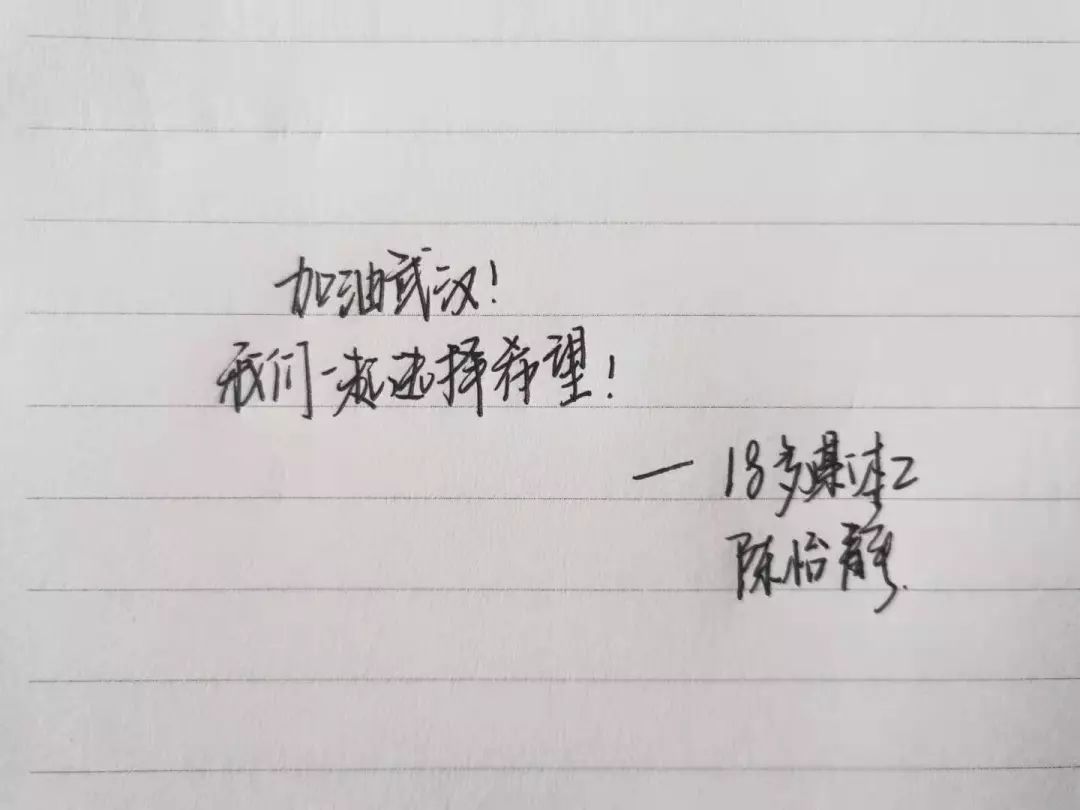 加油武汉!
我们一起选择希望!
— 18多媒体2
陈怡静.